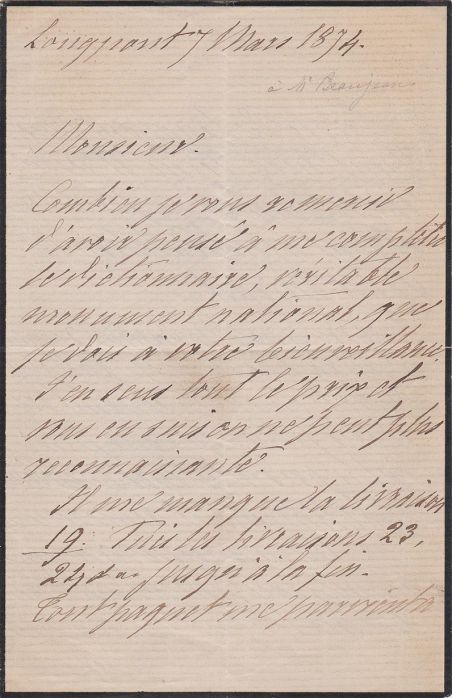 Longpont 7 Mars 1874.
à Mr Beaujean
Monsieur.
Combien je vous remercie
d'avoir pensé à me compléter
le dictionnaire, véritable
monument national, que
je dois à votre bienveillance.
J'en sens tout le prix et
vous en suis on ne peut plus
reconnaissante.
Il me manque la livraison
19. Puis les livraisons 23,
24 jusqu'à la fin.
Tout paquet me parviendra